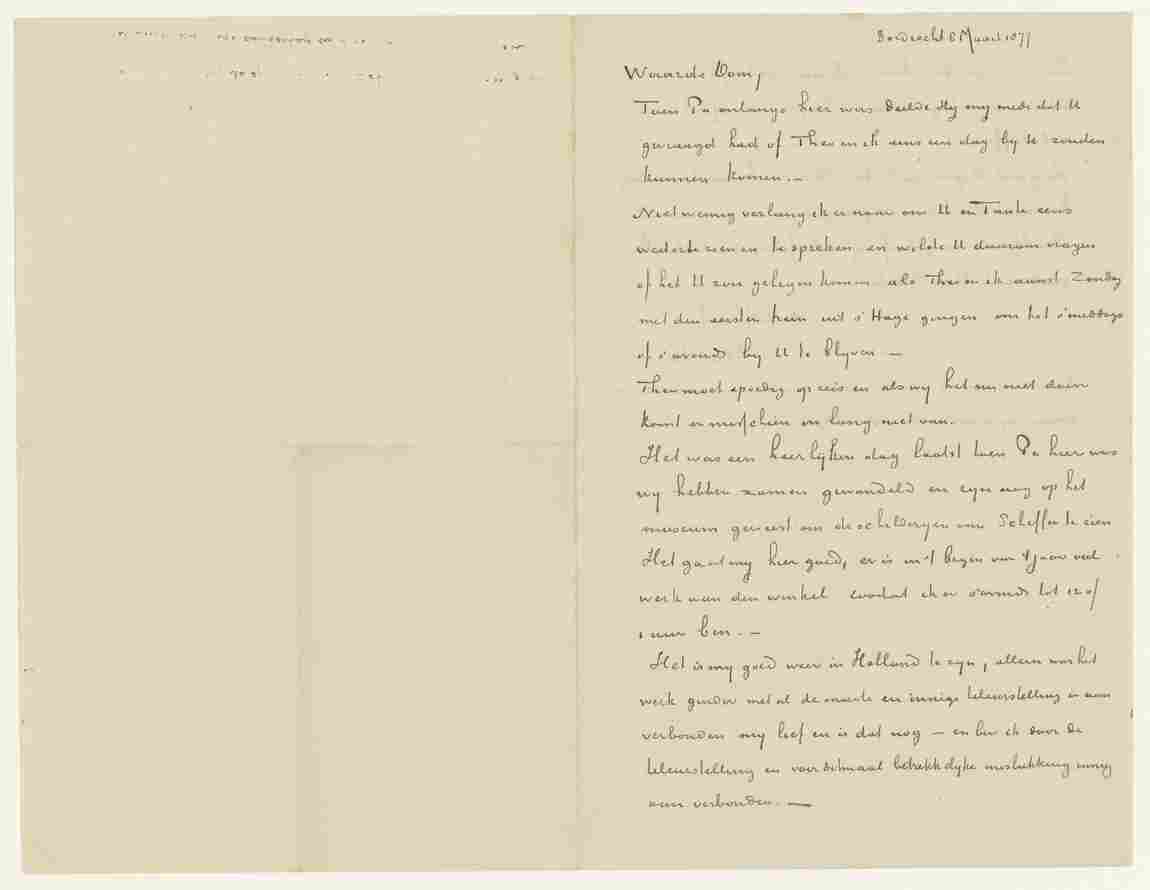 Dordrecht 8 Maart 1877
Waarde Oom,
Toen Pa onlangs hier was deelde Hij my mede dat U
gevraagd had of Theo en ik eens een dag by te zouden
kunnen komen. —
Niet weinig verlang ik er naar om U en Tante eens
weder te zien en te spreken en wilde U daarom vragen
of het U zou gelegen komen als Theo en ik aanst. Zondag
met den eersten trein uit s'Hage gingen om tot s'middags
of s'avonds by U te blyven —
Theo moet spoedig op reis en als wy het nu niet doen
komt er misschien in lang niet van.
Het was een heerlyken dag laatst toen Pa hier was
wy hebben zamen gewandeld en zyn nog op het
museum geweest om de schilderyen van Scheffer te zien
Het gaat my hier goed, er is in 't begin van 't jaar veel
werk aan den winkel zoodat ik er s'avonds tot 12 of
1 uur ben. —
Het is my goed weer in Holland te zyn, alleen was het
werk ginder met al de moeite en innige teleurstelling er aan
verbonden my lief en is dat nog — en ben ik door de
teleurstelling en voor ditmaal betrekkelyke mislukking innig
aan verbonden. —